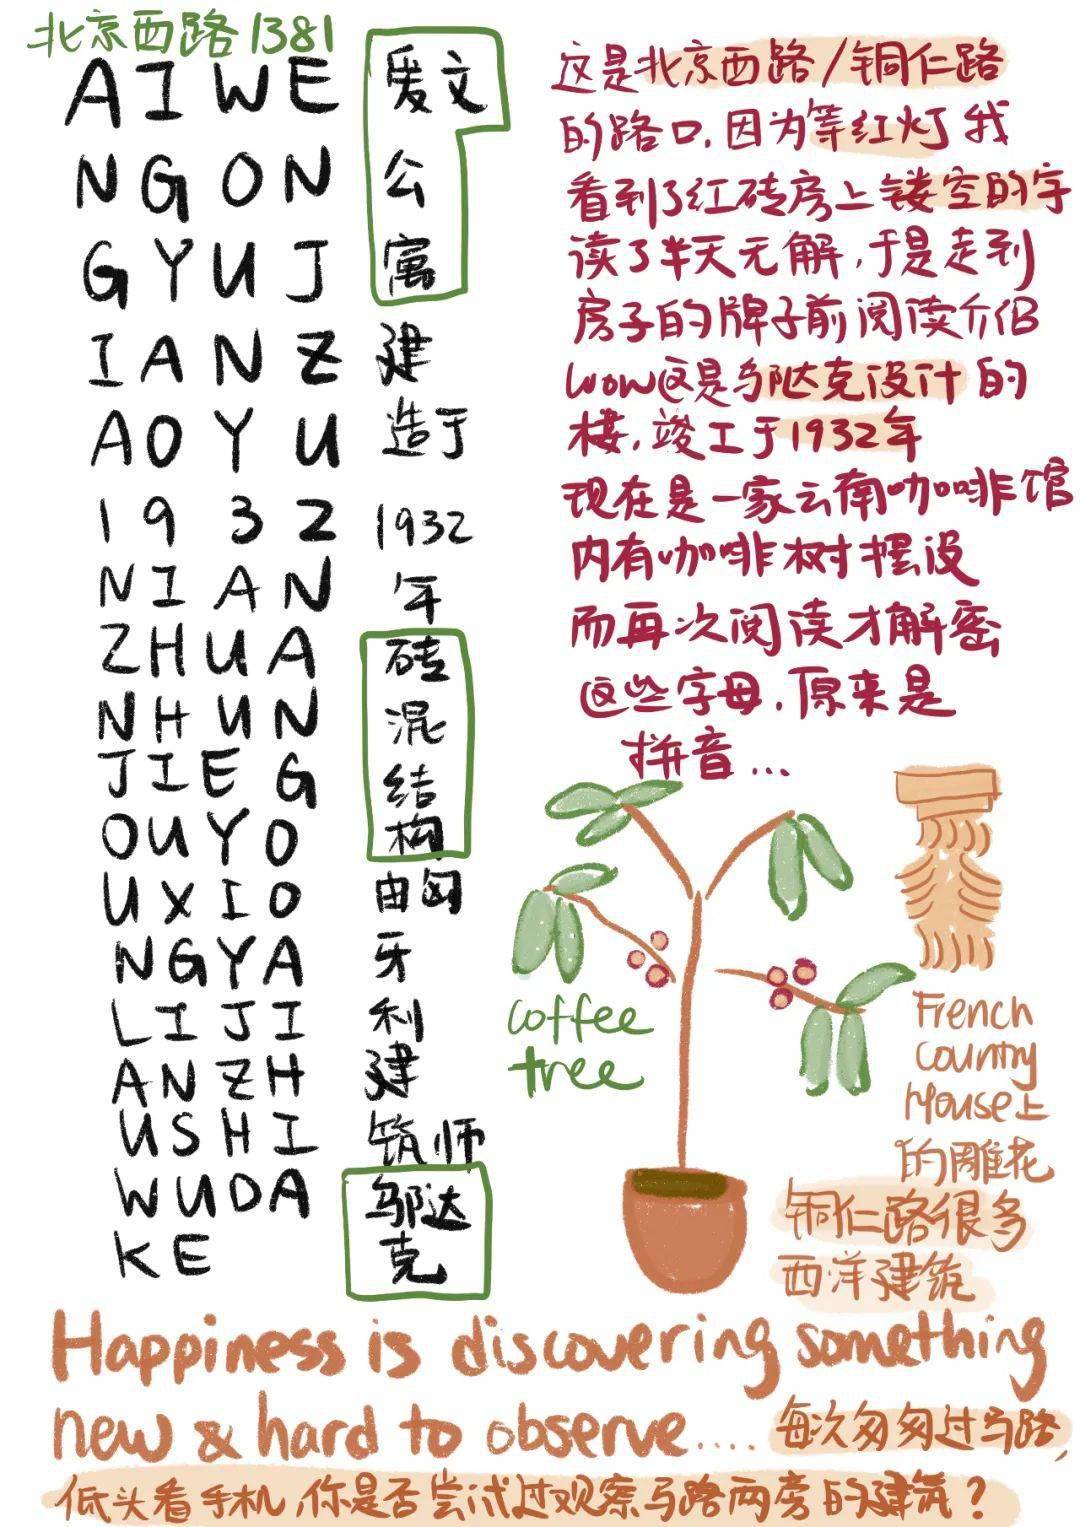 北京西路1381
AIWE
NGON
GYUJ
IANZ
AOYU
1932
NIAN
ZHUA
NHUN
JIEG
OUYO
UXIO
NGYA
LIJI
ANZH
USHI
WUDA
KE
爱文
公
寓
建
造于
1932
年
砖
混
结
构
由匈
牙
利
建
筑师
邬达
克
这是北京西路/铜仁路
的路口,因为等红灯我
看到了红砖房上镂空的字
读了半天无解,于是走到
房子的牌子前阅读介绍
wow这是邬达克设计的
楼,竣工于1932年
现在是一家云南咖啡馆
内有咖啡树摆设
而再次阅读才解密
这些字母,原来是
拼音...
coffee
tree
French
country
House上
的雕花
铜仁路很多
西洋建筑
Happiness is discovering something
new & hard to observe....
每次匆匆过马路,
低头看手机,你是否尝试过观察马路两旁的建筑?